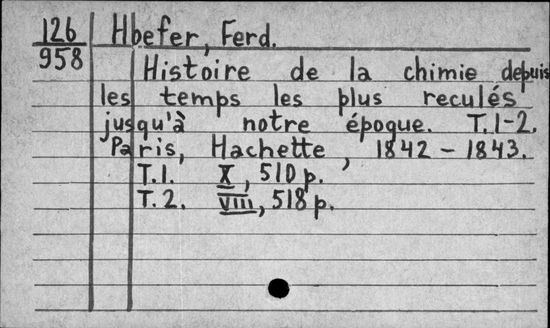 126
958
Hoefer, Ferd.
Histoire de la chimie depuis
les temps les plus reculés
jusqu'à notre époque. T.1-2.
Paris, Hachette, 1842 - 1843.
T.1. X, 510 p.
T.2. VIII, 518 p.